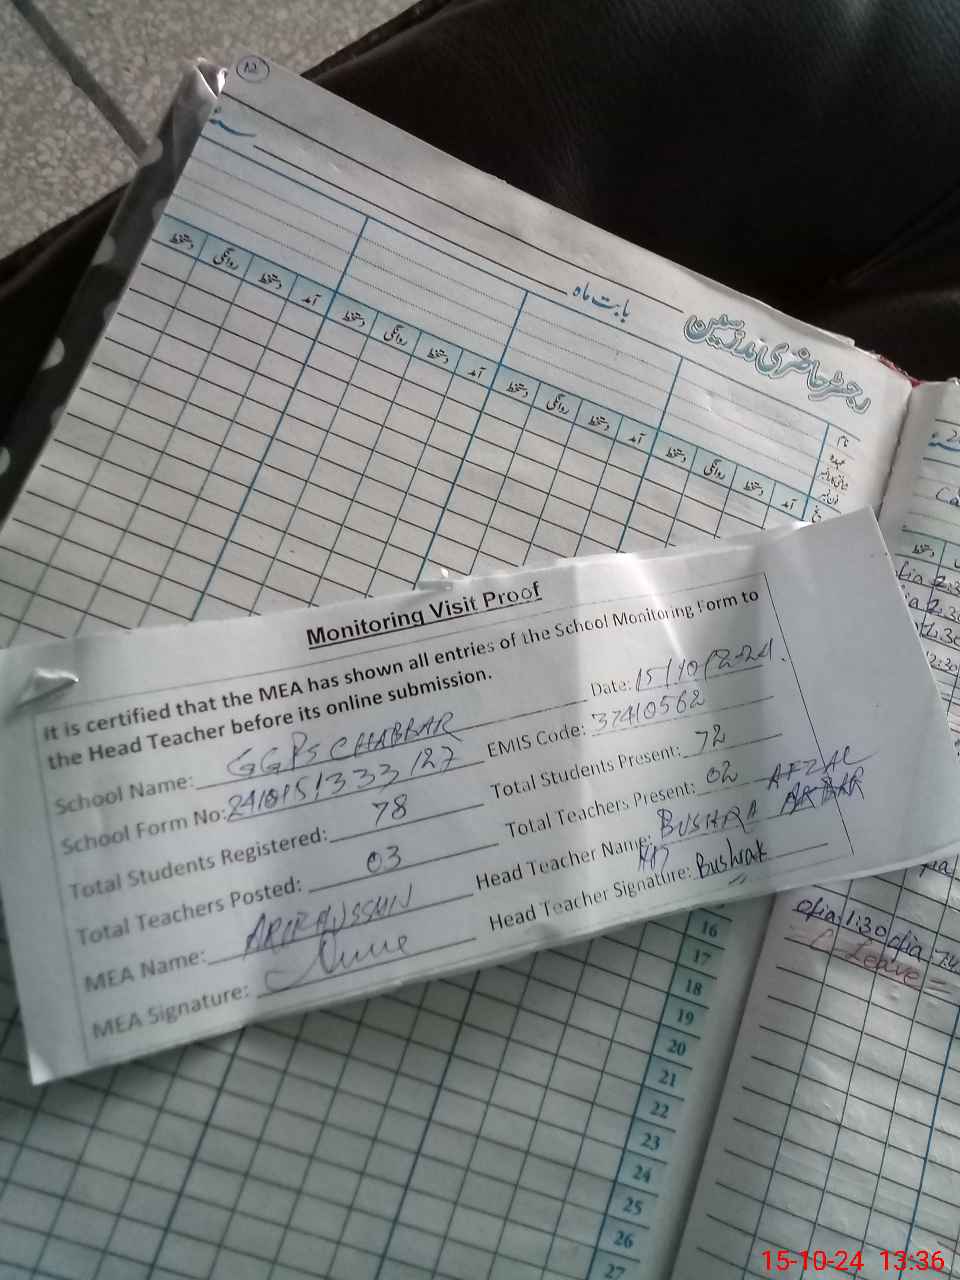 12
سنہ
بابت ماہ
رجسٹر حاضری مدرسین
نام
عہدہ
آمد دستخط روانگی دستخط آمد دستخط روانگی دستخط آمد دستخط روانگی دستخط آمد دستخط روانگی دستخط
Monitoring Visit Proof
It is certified that the MEA has shown all entries of the School Monitoring Form to
the Head Teacher before its online submission.
Date: 15/10/2024
School Name: GGPS CHABBAR
EMIS Code: 37410562
School Form No: 2410151333127
Total Students Present: 72
Total Students Registered: 78
Total Teachers Present: 02
Total Teachers Posted: 03
Head Teacher Name: BUSHRA AFZAL
AKBAR
MEA Name:
Head Teacher Signature: Bushra
MEA Signature:
16
17
18
19
20
21
22
23
24
25
26
27
1:30
Leave
15-10-24 13:36